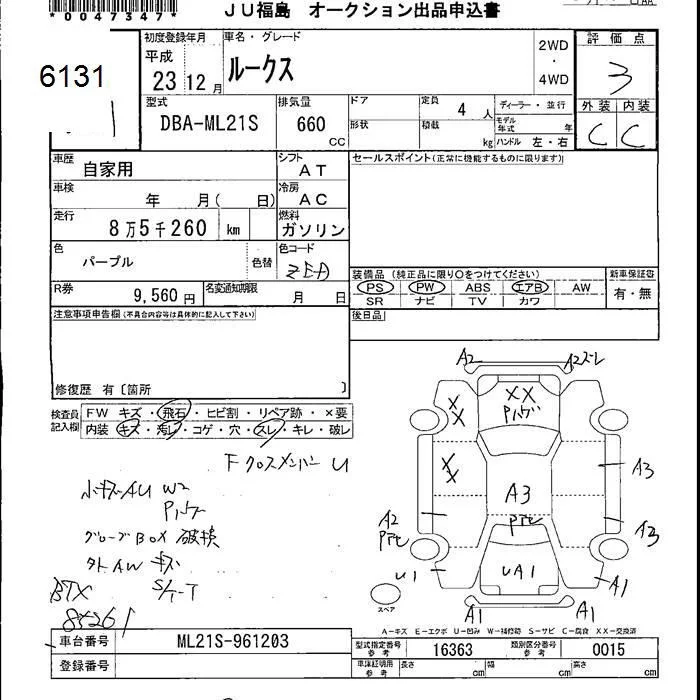 *0047347*
JU福島 オークション出品申込書
6131
初度登録年月
平成
23 12月
車名・グレード
ルークス
2WD
・
4WD
評価点
3
外装 内装
C C
型式
DBA-ML21S
排気量
660
CC
ドア
形状
定員 4 人
積載 kg
ディーラー・並行
モデル年式 年
ハンドル 左・右
車歴
自家用
シフト
AT
セールスポイント(正常に機能するものに限ります)
車検
年 月( 日)
冷房
AC
走行
8万5千260 km
燃料
ガソリン
色
パープル
色替
色コード
ZEA
R券
9,560円
名変通知期限
月 日
装備品(純正品に限り○をつけてください)
PS PW ABS エアB AW
SR ナビ TV カワ
新車保証書
有・無
注意事項申告欄(不具合内容等は具体的に記入して下さい)
後日品
修復歴 有〔箇所 〕
検査員記入欄
FW キズ・飛石・ヒビ割・リペア跡・×要
内装 キズ・汚レ・コゲ・穴・スレ・キレ・破レ
Fクロスメンバー U
小キズAU W2
グローブBOX 破損
外AW キズ
S/T-T
BTX
85261
A2
A2ズレ
XX
XX
XX
A3
A3
A2
A3
U1
UA1
A1
A1
A1
スペア
A-キズ E-エクボ U-凹み W-補修跡 S-サビ C-腐食 XX-交換済
車台番号
ML21S-961203
登録番号
型式指定番号
参考
16363
類別区分番号
参考
0015
車体証明用
参考
長さ cm
幅 cm
高さ cm